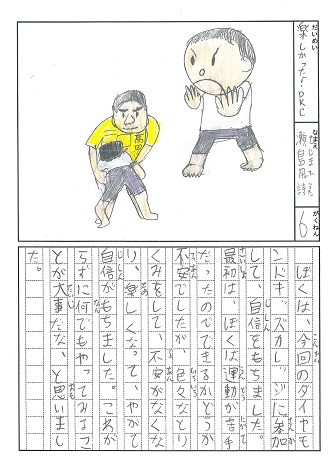 だいめい
楽しかった!DKC
なまえ
瀬島風詩
がくねん
6
ぼくは、今回のダイヤモ
ンドキッズカレッジに参加
して、自信をもちました。
最初は、ぼくは運動が苦手
だったのでできるかどうか
不安でしたが、色々なとり
くみをして、不安がなくな
り、楽しくなって、やがて
自信がもちました。こわが
らずに何でもやってみるこ
とが大事だな、と思いまし
た。